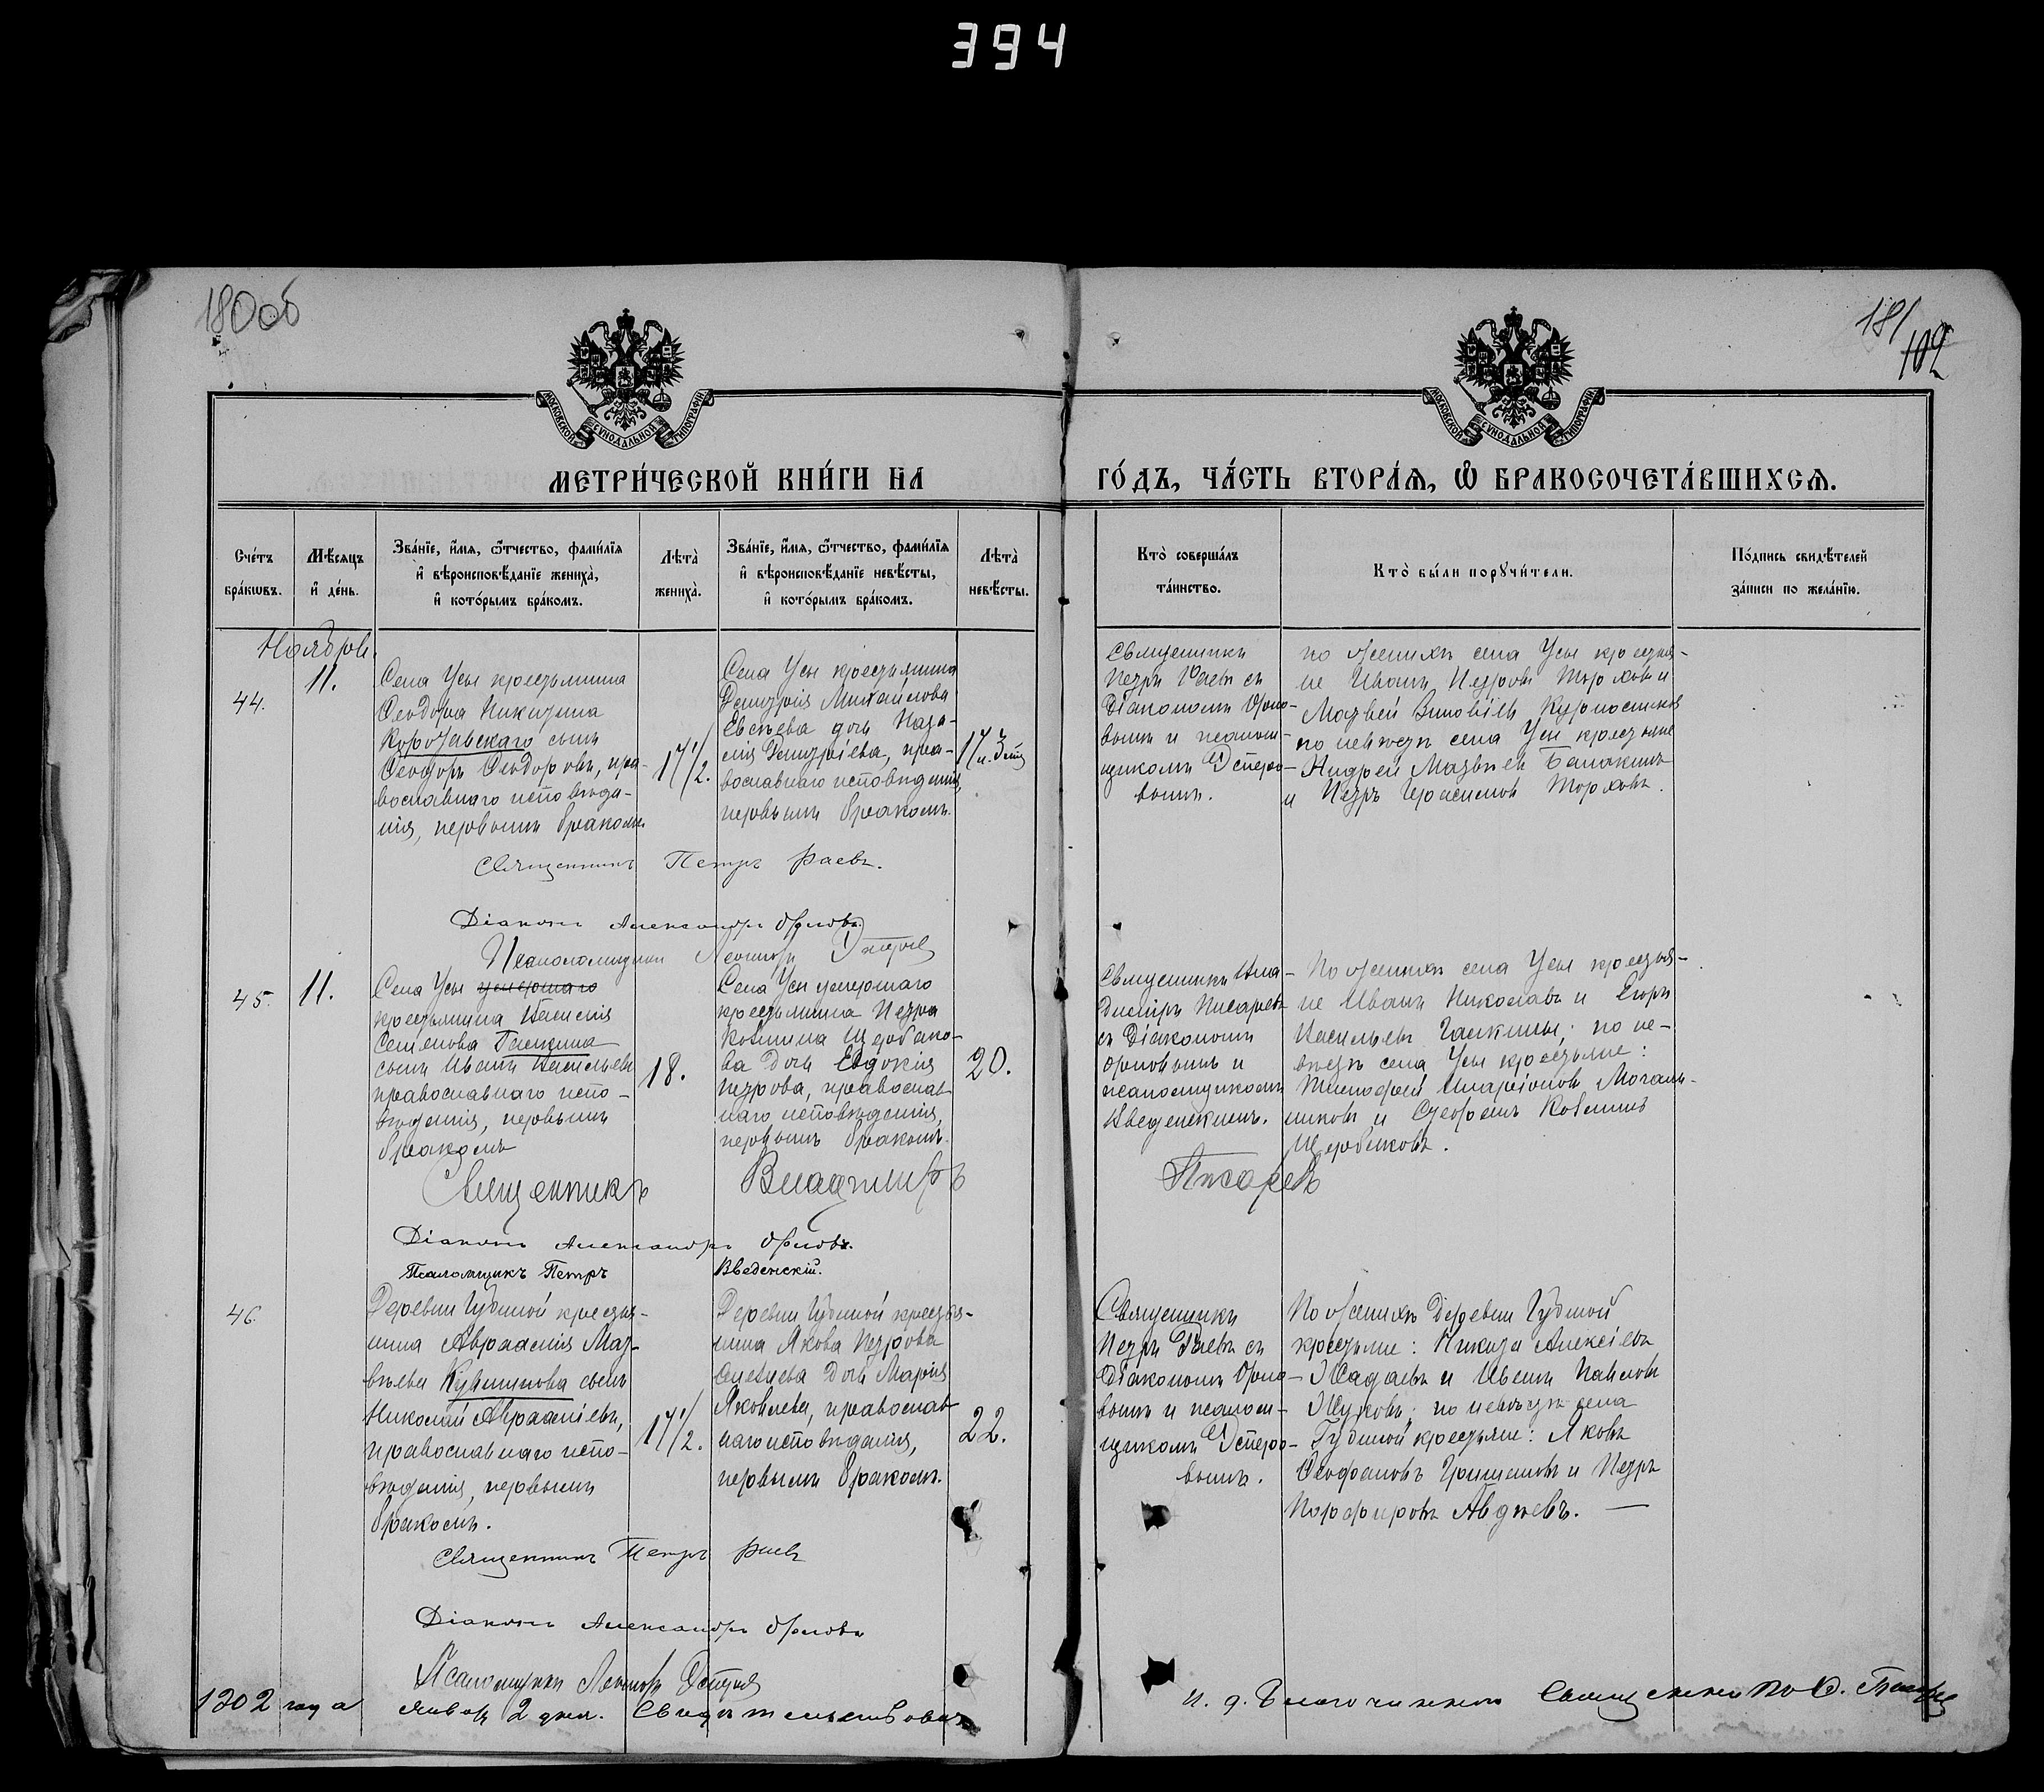 394
180об
181
102
МОСКОВСКОЙ СѴНОДАЛЬНОЙ ТИПОГРАФІИ
МОСКОВСКОЙ СѴНОДАЛЬНОЙ ТИПОГРАФІИ
МЕТРИ́ЧЕСКОЙ КНИ́ГИ НА
ГО́ДЪ, ЧА́СТЬ ВТОРА́Ѧ, Ѽ БРАКОСОЧЕТА́ВШИХСѦ.
Сче́тъ
бра́кѡвъ.
Мѣ́сяцъ
и҆ де́нь.
Зва́нїе, и҆́мя, ѻ҆́тчество, фами́лїя
и҆ вѣроисповѣ́данїе жениха̀,
и҆ кото́рымъ бра́комъ.
Лѣта̀
жениха̀.
Зва́нїе, и҆́мя, ѻ҆́тчество, фами́лїя
и҆ вѣроисповѣ́данїе невѣ́сты,
и҆ кото́рымъ бра́комъ.
Лѣта̀
невѣ́сты.
Кто̀ соверша́лъ
та́инство.
Кто̀ бы́ли порꙋчи́тели.
По́дпись свидѣ́телей
за́писи по жела́нїю.
Ноября.
44.
11.
Села Усы крестьянина
Ѳеодора Никитина
сынъ
Ѳеодоръ Ѳеодоровъ, пра-
вославнаго исповѣда-
нія, первымъ бракомъ
17 1/2.
Села Усы крестьянина
Димитрія Михайлова
Евсѣева дочь Пала-
гія Димитріева, пра-
вославнаго исповѣданія,
первымъ бракомъ.
17
Священникъ
Петръ Раевъ съ
Діакономъ Орло-
вымъ и псалом-
щикомъ
вымъ.
по женихѣ села Усы крестья-
не Иванъ Петровъ Торховъ и
Матвей
по невѣстѣ села Усы крестьяне
Андрей Матвѣев Балакинъ
и Петръ Герасимов Торховъ.
Священникъ Петръ Раевъ.
Діаконъ Александръ Орловъ
Псаломщикъ
45.
11.
Села Усы умершаго
крестьянина Василія
Семенова Галкина
сынъ Иванъ Васильевъ
православнаго испо-
вѣданія, первымъ
бракомъ
18.
Села Усы умершаго
крестьянина Петра
Козмина Щербако-
ва дочь Евдокія
Петрова, православ-
наго исповѣданія,
первымъ бракомъ.
20.
Священникъ Вла-
диміръ Писаревъ
съ Діакономъ
Орловымъ и
псаломщикомъ
Введенскимъ.
По женихѣ села Усы крестья-
не Иванъ Николаевъ и Егоръ
Васильевъ Галкины; по не-
вѣстѣ села Усы крестьяне:
Тимофей Иларіоновъ
и Козминъ
Щербаковъ.
Священникъ Владиміръ Писаревъ
Діаконъ Александръ Орловъ.
Псаломщикъ Петръ Введенскій.
46.
Деревни Гудиной крестья-
нина Авраамія Мат-
вѣева сынъ
Николай Авраамiевъ,
православнаго испо-
вѣданія, первымъ
бракомъ.
17 1/2.
Деревни Гудиной крестья-
нина Якова Петрова
дочь Марія
Яковлева, православ-
наго исповѣданія,
первымъ бракомъ.
22.
Священникъ
Петръ Раевъ съ
Діакономъ Орло-
вымъ и псалом-
щикомъ
вымъ.
По женихѣ деревни Гудиной
крестьяне: Никита Алексѣевъ
и Иванъ Павловъ
Жуковъ; по невѣстѣ села
Гудиной крестьяне: Яковъ
Ѳеофановъ и Петръ
Порфировъ Авдѣевъ. —
Священникъ Петръ Раевъ
Діаконъ Александръ Орловъ
Псаломщикъ
1902 года Январ 2 дня. Свидѣтельствовалъ
и. д. Благочиннаго Священникъ